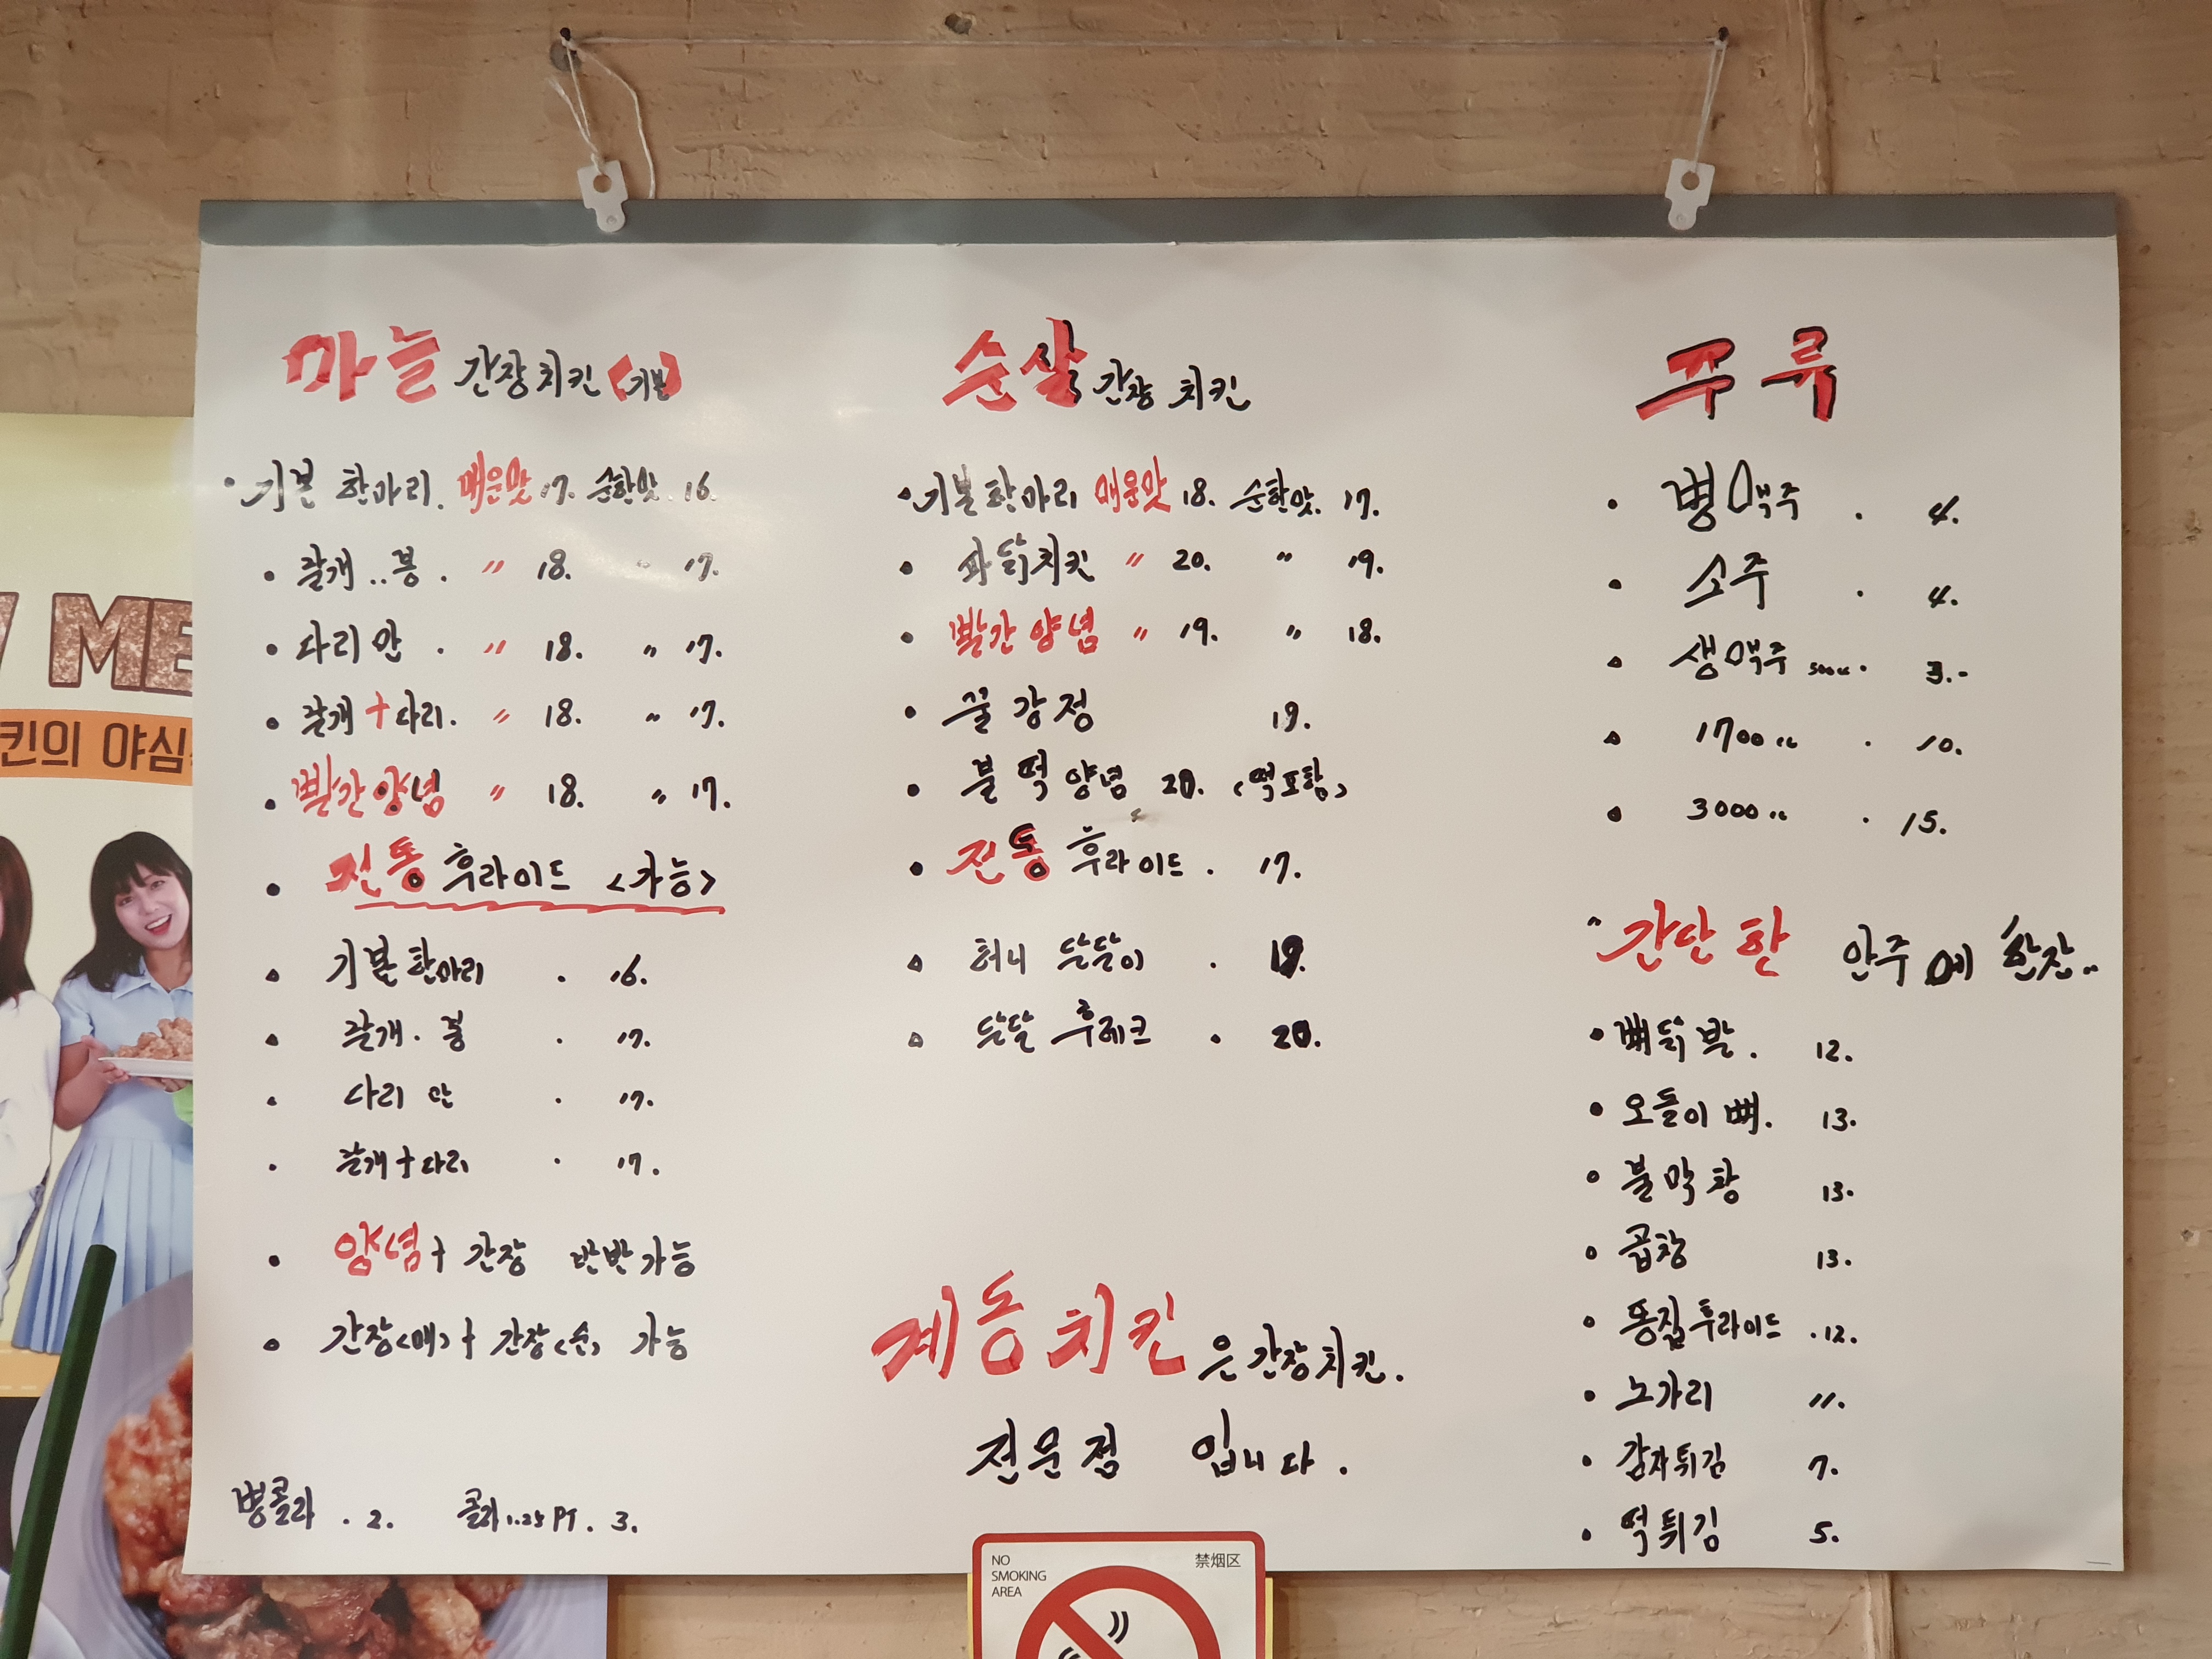 마늘 간장치킨 (기본)
· 기본 한마리. 매운맛 17. 순한맛. 16.
• 날개..봉 . 〃 18. 〃 17.
• 다리만 . 〃 18. 〃 17.
• 날개+다리. 〃 18. 〃 17.
• 빨간양념 〃 18. 〃 17.
• 전통 후라이드 <가능>
• 기본한마리 . 16.
• 날개·봉 . 17.
• 다리만 . 17.
• 날개+다리 . 17.
• 양념+간장 반반가능
• 간장<매>+간장<순> 가능
병콜라 . 2. 콜라1.25PT . 3.
순살 간장 치킨
• 기본한마리 매운맛 18. 순한맛. 17.
• 파닭치킨 〃 20. 〃 19.
• 빨간양념 〃 19. 〃 18.
• 꿀강정 19.
• 불떡양념 20. <떡포함>
• 전통 후라이드 . 17.
• 허니 달달이 . 19.
• 달달 후레크 . 20.
계동치킨은 간장치킨.
전문점 입니다.
주류
• 병맥주 . 4.
• 소주 . 4.
• 생맥주 500cc . 3.-
• 1700cc . 10.
• 3000cc . 15.
" 간단한 안주에 한잔..
• 뼈닭발. 12.
• 오돌이뼈. 13.
• 불막창 13.
• 곱창 13.
• 똥집후라이드 .12.
• 노가리 11.
• 감자튀김 7.
• 떡튀김 5.
ME
킨의 야심
NO
SMOKING
AREA
禁烟区